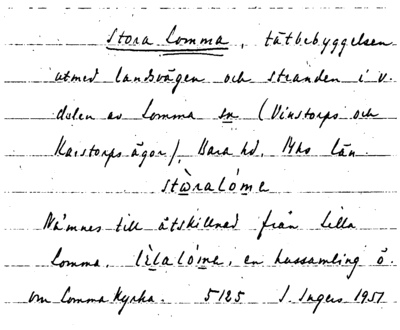 Stora Lomma, tätbebyggelsen
utmed landsvägen och stranden i v.
delen av Lomma sn (Vinstorps och
Karstorps ägor), Bara hd, Mho län.
stẁralóme
Nämnes till åtskillnad från Lilla
Lomma, lìlalóme, en hussamling ö.
om Lomma Kyrka. 5125 I. Ingers 1951